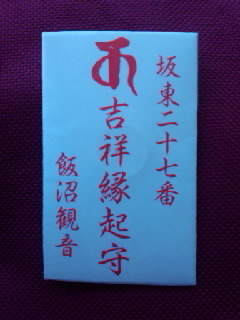 坂東二十七番
吉祥縁起守
飯沼観音